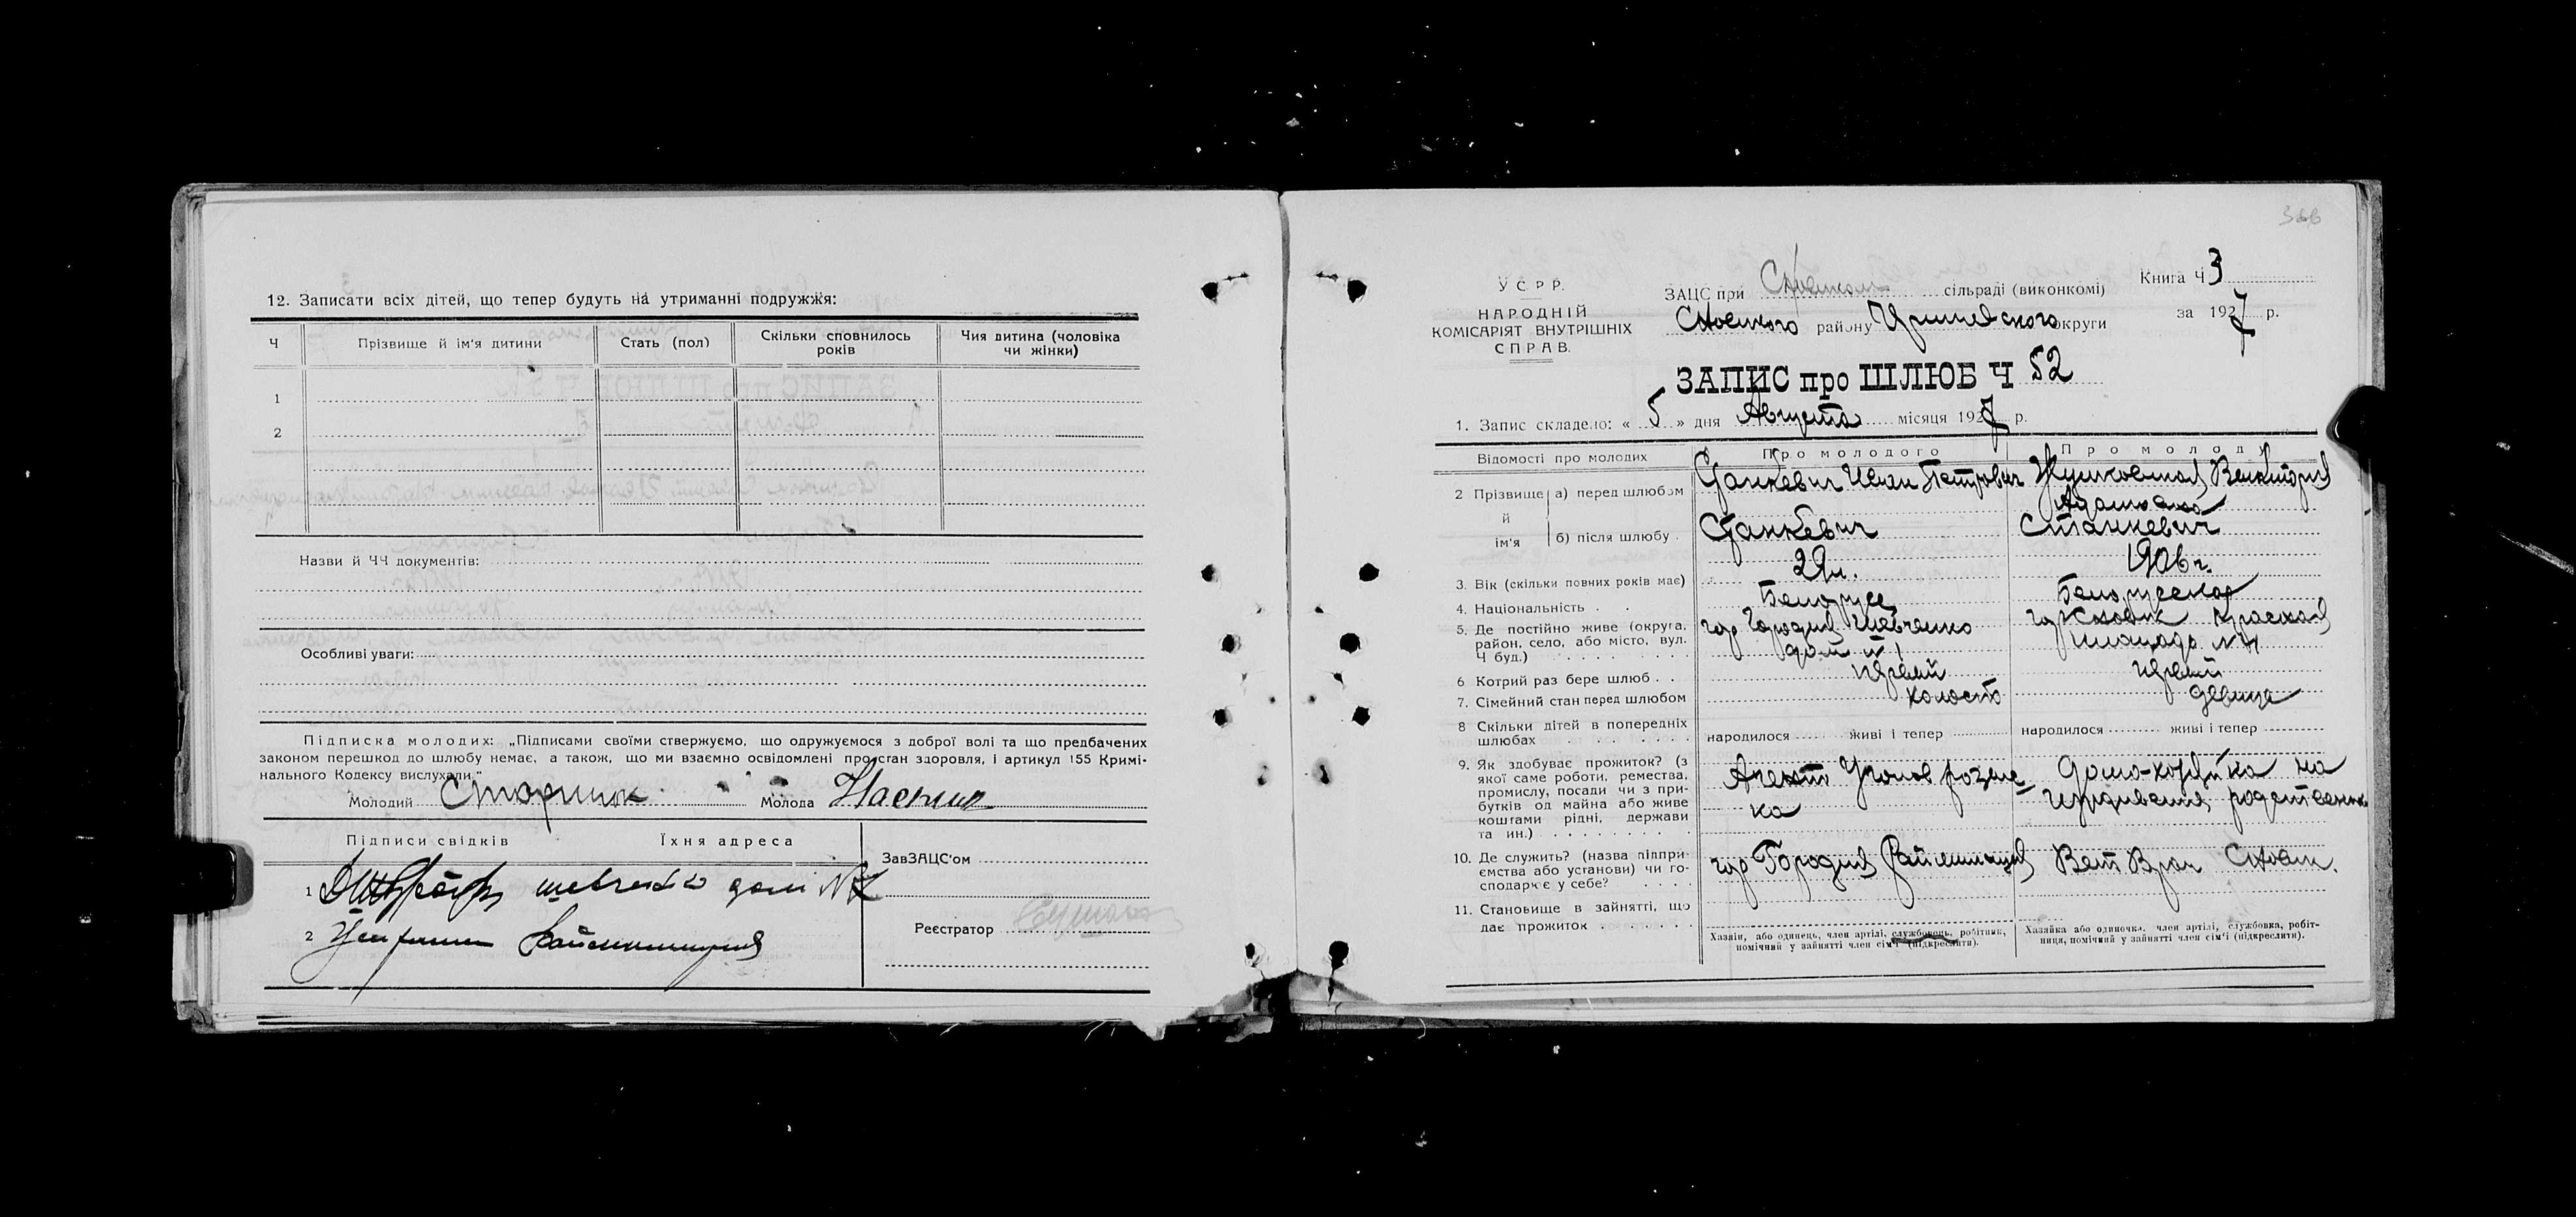 12. Записати всіх дітей, що тепер будуть на утриманні подружжя:
Ч
Прізвище й ім'я дитини
Стать (пол)
Скільки сповнилось років
Чия дитина (чоловіка чи жінки)
1
2
Назви й ЧЧ документів:
Особливі уваги:
Підписка молодих: „Підписами своїми стверджуємо, що одружуємося з доброї волі та що предбачених
законом перешкод до шлюбу немає, а також, що ми взаємно освідомлені про стан здоровля, і артикул 155 Кримі-
нального Кодексу вислухали."
Молодий
Молода
Підписи свідків Їхня адреса
1 дом №
2
ЗавЗАЦС'ом
Реєстратор
366
У С Р Р.
НАРОДНІЙ
КОМІСАРІЯТ ВНУТРІШНІХ
СПРАВ.
ЗАЦС при сільраді (виконкомі)
Сновского району округи
Книга Ч 3
за 1927 р.
ЗАПИС про ШЛЮБ Ч 52
1. Запис складено: « 5 » дня Августа місяця 1927 р.
Відомості про молодих
Про молодого
Про молоду
2 Прізвище й ім'я
а) перед шлюбом
Станкевич Иван Петрович
Виктория
б) після шлюбу
Станкевич
Станкевич
3. Вік (скільки повних років має)
29 л.
1906 г.
4. Національність
Белорусс
Белорусская
5. Де постійно живе (округа,
район, село, або місто, вул.
Ч буд.)
гор Городня Шевченко
дом № 1
гор Сновск Красная
площадь №
6 Котрий раз бере шлюб
первый
первый
7. Сімейний стан перед шлюбом
холост
девица
8 Скільки дітей в попередніх
шлюбах
народилося живі і тепер
народилося живі і тепер
9. Як здобуває прожиток? (з
якої саме роботи, ремества,
промислу, посади чи з при-
бутків од майна або живе
коштами рідні, держави
та ин.)
Агент Уголов розыс
ка
Домо-хозяйка на
иждивении родственник
10. Де служить? (назва підпри-
ємства або установи) чи го-
сподарює у себе?
гор Городня Раймилиция
Вет Врач Сновск.
11. Становище в зайнятті, що
дає прожиток
Хазяїн, або одинець, член артілі, службовець, робітник,
помічний у зайнятті член сім'ї (підкреслити).
Хазяйка або одиночка, член артілі, службовка, робіт-
ниця, помічний у зайнятті член сім'ї (підкреслити).